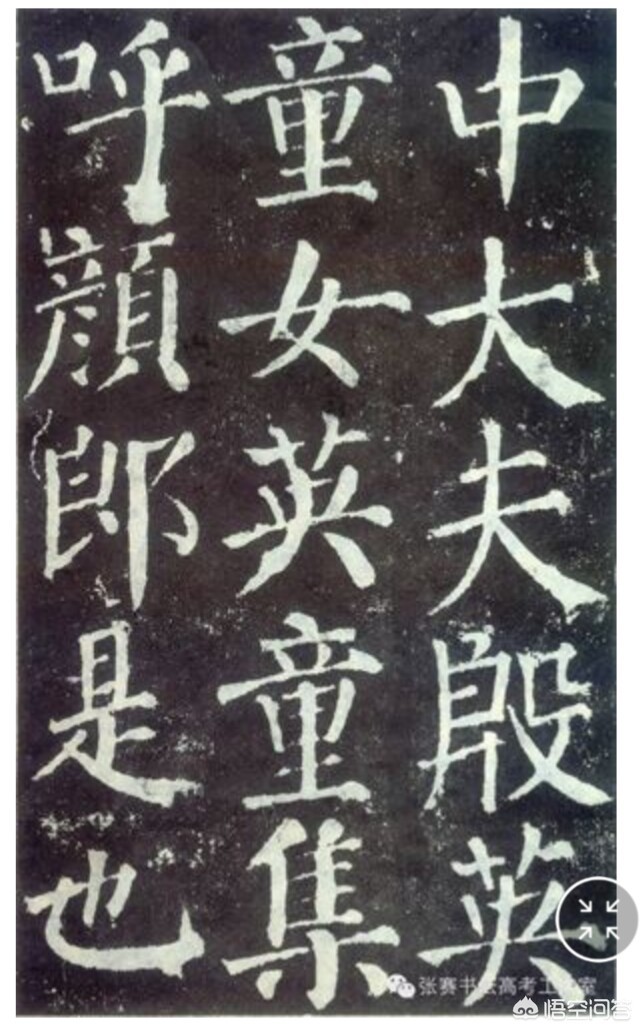 中大夫殷英
童女英童集
呼顏郎是也
张赛书法高考工作室
悟空问答